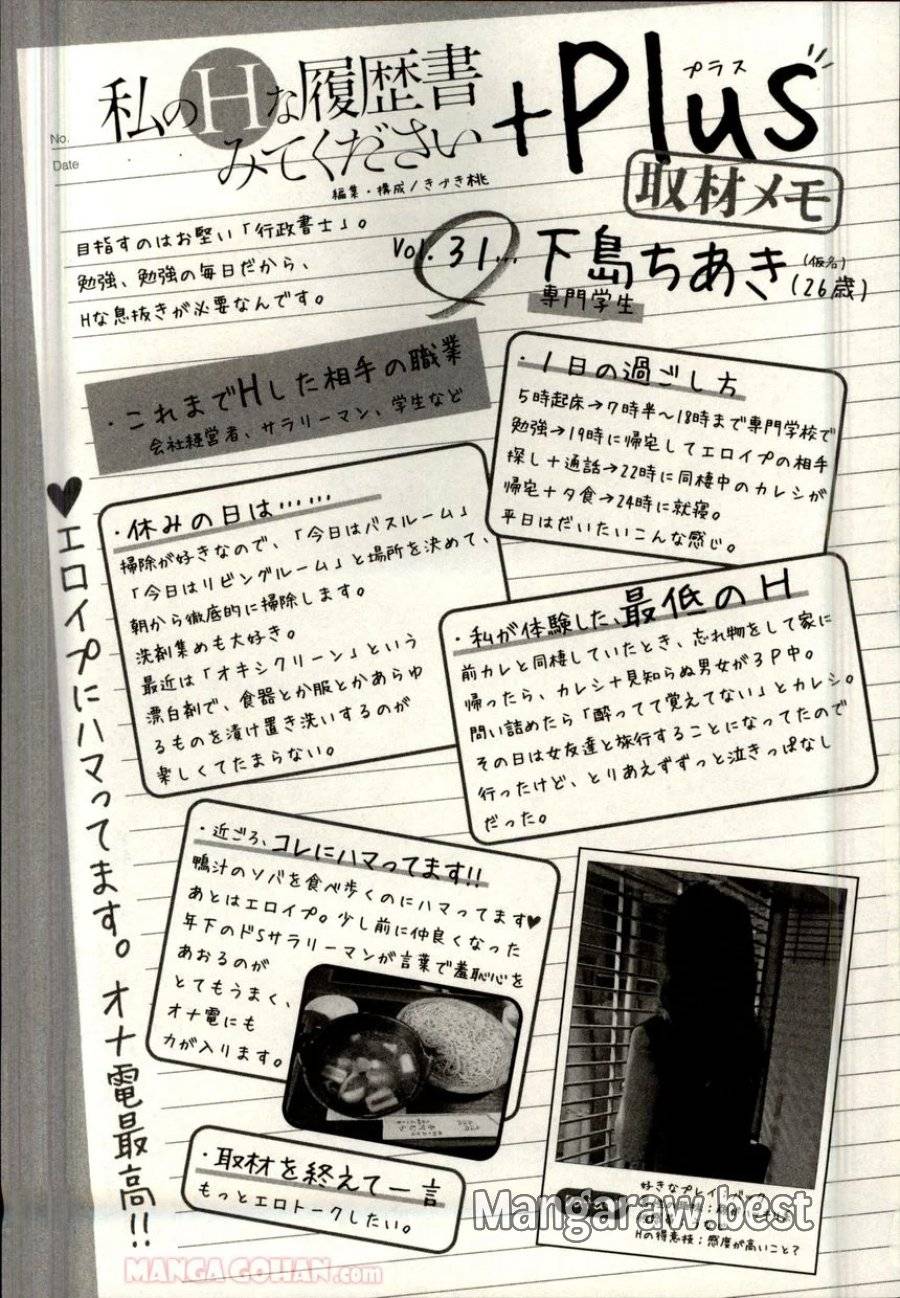 No.
Date
私のHな履歴書
みてください
+Plus
プラス
編集・構成/きづき桃
取材メモ
目指すのはお堅い「行政書士」。
勉強、勉強の毎日だから、
Hな息抜きが必要なんです。
Vol.31...
下島ちあき
(仮名)
(26歳)
専門学生
・これまでHした相手の職業
会社経営者、サラリーマン、学生など
・1日の過ごし方
5時起床→7時半〜18時まで専門学校で
勉強→19時に帰宅してエロイプの相手
探し+通話→22時に同棲中のカレシが
帰宅+夕食→24時に就寝。
平日はだいたいこんな感じ。
・休みの日は……
掃除が好きなので、「今日はバスルーム」
「今日はリビングルーム」と場所を決めて、
朝から徹底的に掃除します。
洗剤集めも大好き。
最近は「オキシクリーン」という
漂白剤で、食器とか服とかあらゆ
るものを漬け置き洗いするのが
楽しくてたまらない。
・私が体験した、最低のH
前カレと同棲していたとき、忘れ物をして家に
帰ったら、カレシ+見知らぬ男女が3P中。
問い詰めたら「酔ってて覚えてない」とカレシ。
その日は女友達と旅行することになってたので
行ったけど、とりあえずずっと泣きっぱなし
だった。
♥エロイプにハマってます。オナ電最高!!
・近ごろ、コレにハマってます!!
鴨汁のソバを食べ歩くのにハマってます♥
あとはエロイプ。少し前に仲良くなった
年下のドSサラリーマンが言葉で羞恥心を
あおるのが
とてもうまく、
オナ電にも
力が入ります。
・取材を終えて一言
もっとエロトークしたい。
好きなプレイ:バック
Hの得意技:感度が高いこと?
Mangaraw.best
MANGAGOHAN.com